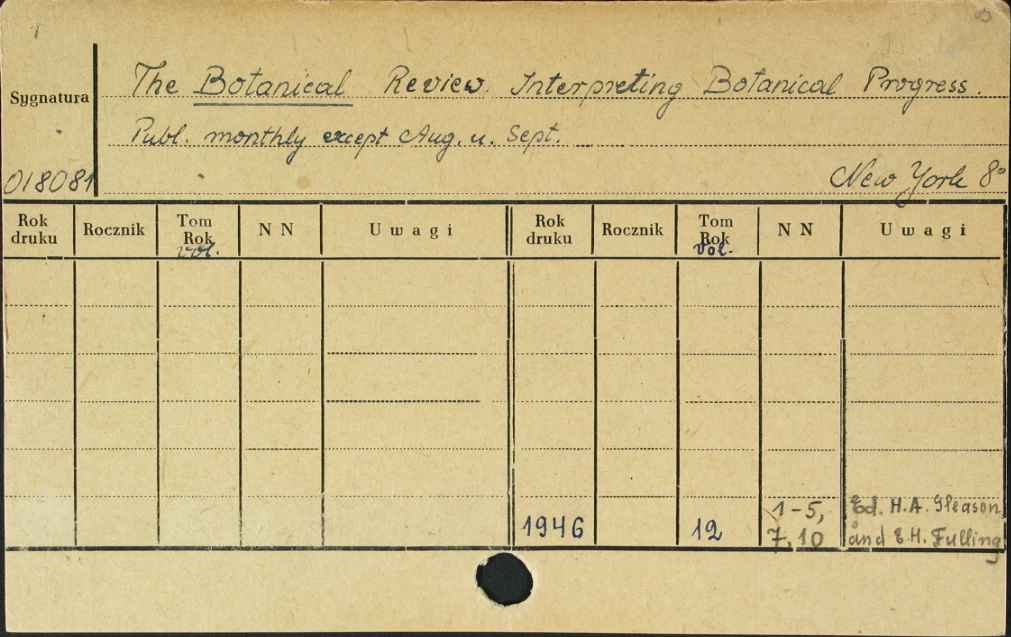 The Botanical Review. Interpreting Botanical Progress.
Sygnatura
Publ. monthly except Aug. u. Sept.
018081 New York 8°
Rok druku Rocznik Tom Rok vol. N N Uwagi Rok druku Rocznik Tom Rok vol. N N Uwagi
1946 12 1-5, 7, 10 Ed. H.A. Gleason and E.H. Fulling